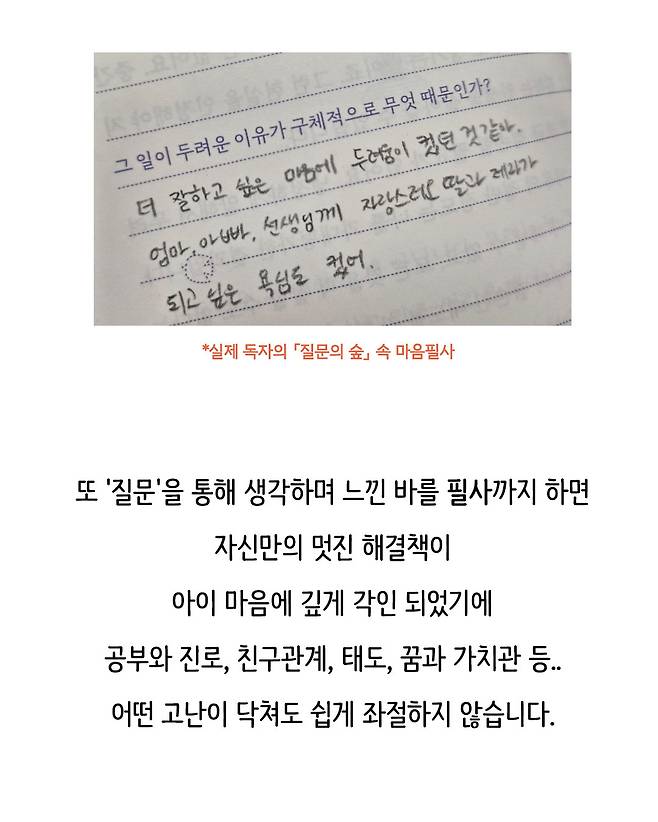 그 일이 두려운 이유가 구체적으로 무엇 때문인가?
더 잘하고 싶은 마음에 두려움이 컸던 것 같아.
엄마, 아빠, 선생님께 자랑스러운 딸과 제자가
되고 싶은 욕심도 컸어.
*실제 독자의 「질문의 숲」 속 마음필사
또 '질문'을 통해 생각하며 느낀 바를 필사까지 하면
자신만의 멋진 해결책이
아이 마음에 깊게 각인 되었기에
공부와 진로, 친구관계, 태도, 꿈과 가치관 등..
어떤 고난이 닥쳐도 쉽게 좌절하지 않습니다.